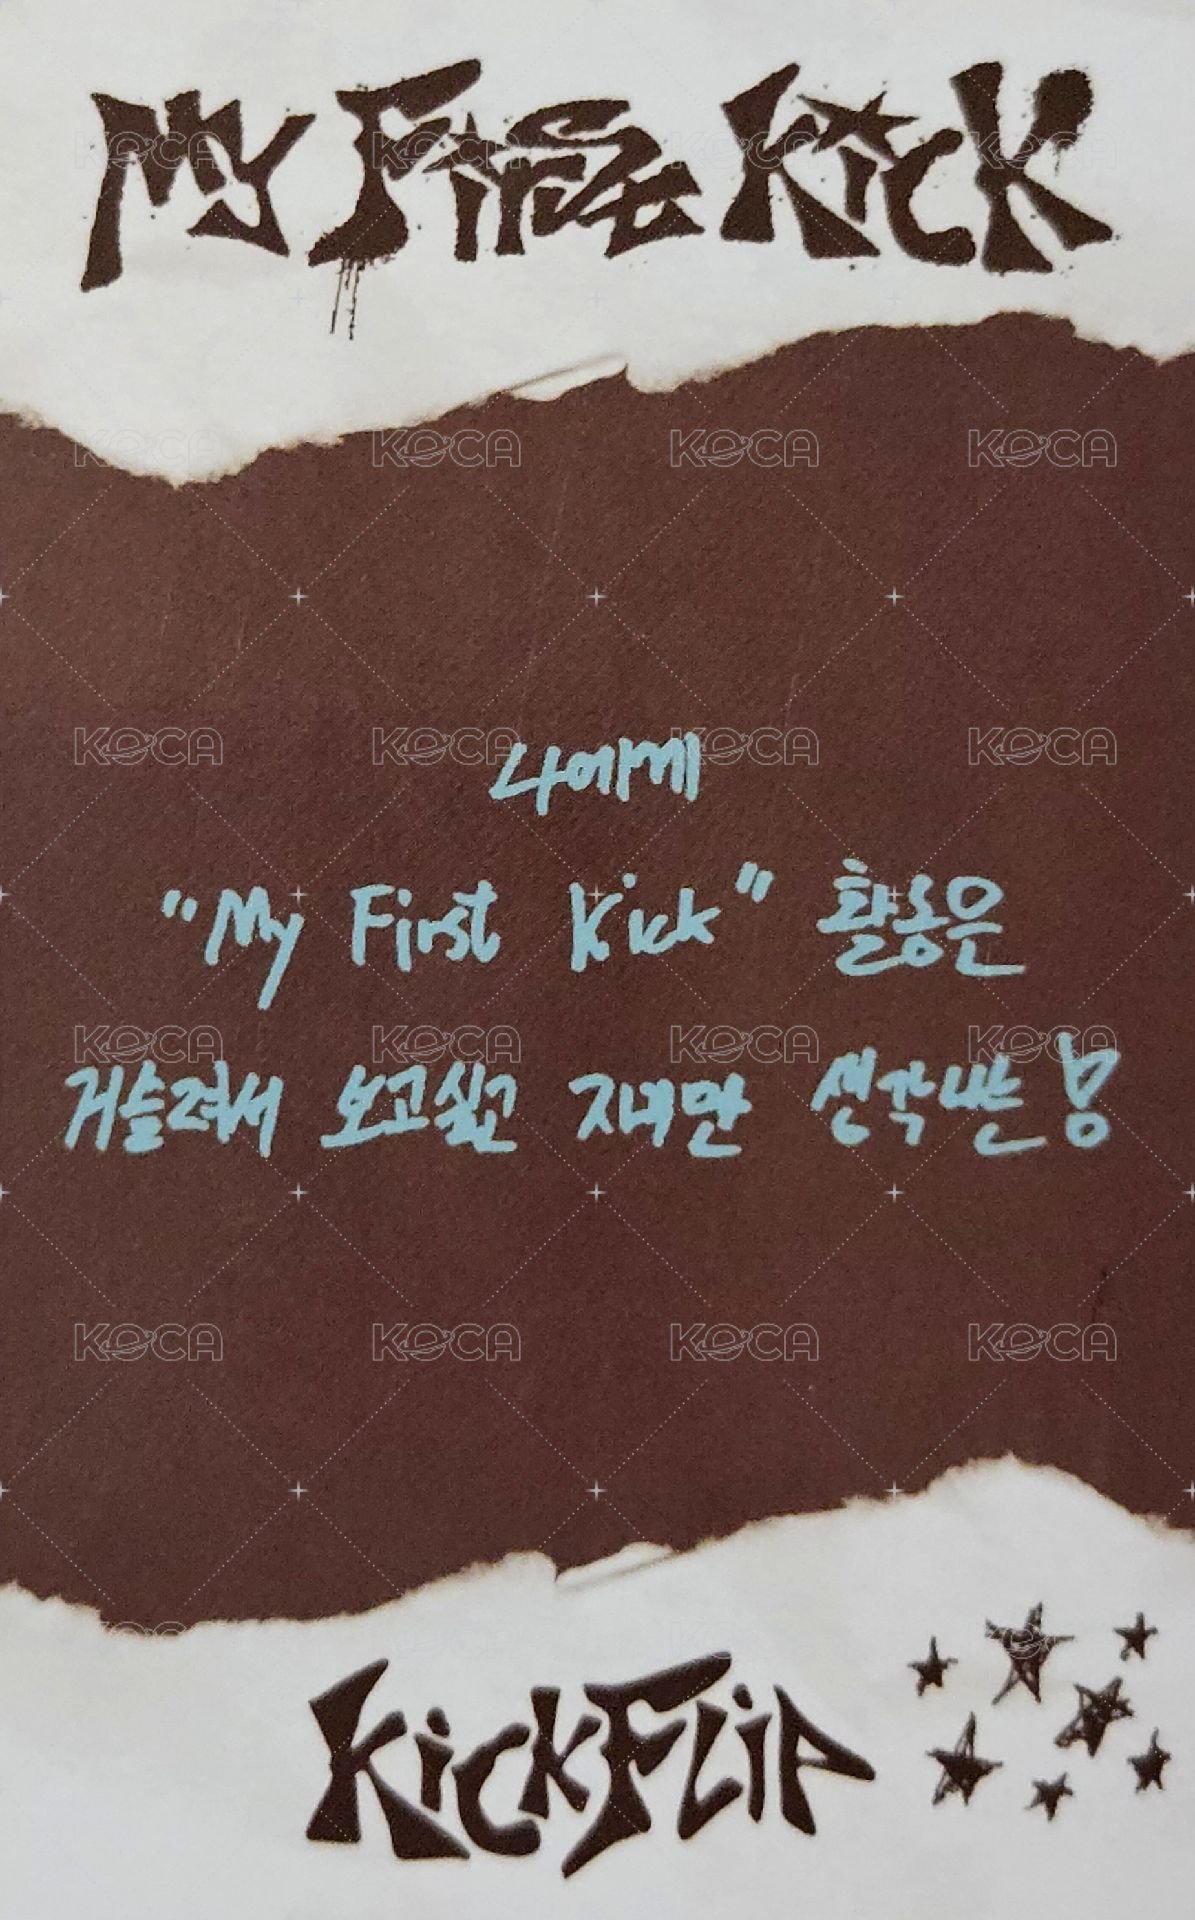 My First Kick
나에게
"My First Kick" 활동은
거슬려서 보고싶고 자꾸만 생각나는 봄
KickFlip
KOCA